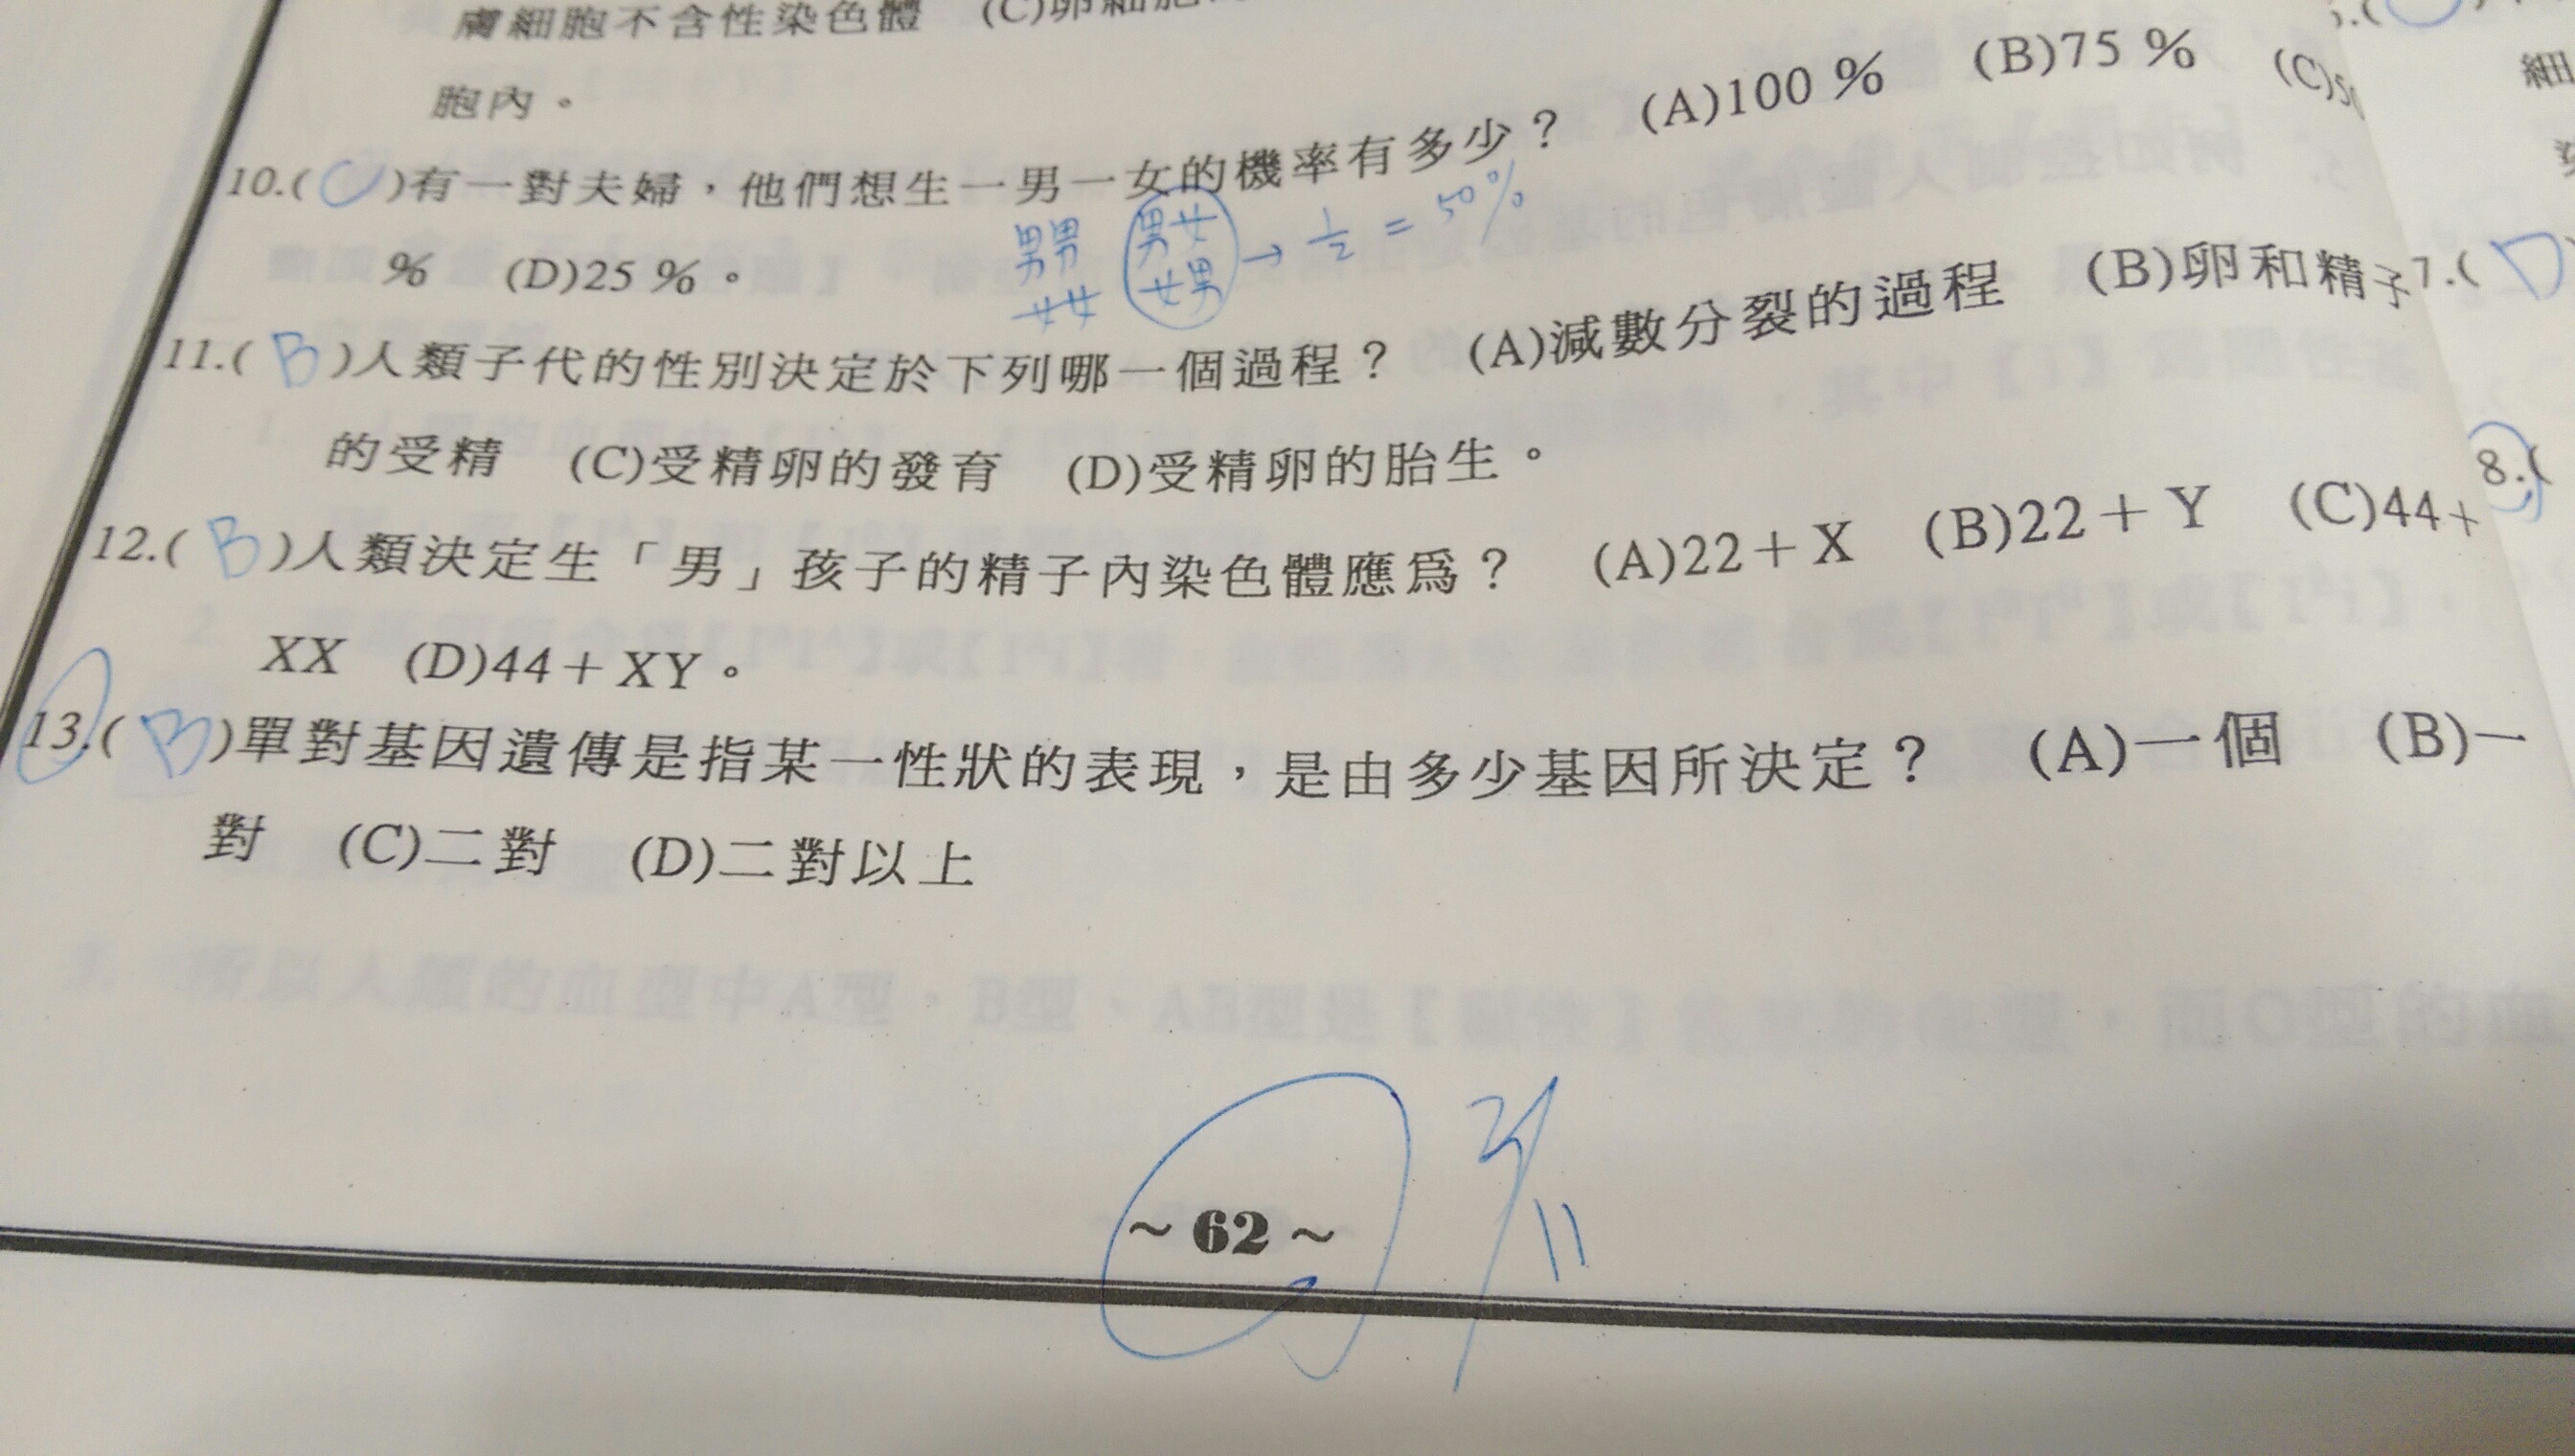 膚細胞不含性染色體 (C)卵細胞
胞內。
10.( C )有一對夫婦，他們想生一男一女的機率有多少？ (A)100 % (B)75 % (C)50
% (D)25 %。
男男 男女
女女 女男 → 1/2 = 50%
11.( B )人類子代的性別決定於下列哪一個過程？ (A)減數分裂的過程 (B)卵和精子
的受精 (C)受精卵的發育 (D)受精卵的胎生。
12.( B )人類決定生「男」孩子的精子內染色體應為？ (A)22＋X (B)22＋Y (C)44＋
XX (D)44＋XY。
13.( B )單對基因遺傳是指某一性狀的表現，是由多少基因所決定？ (A)一個 (B)一
對 (C)二對 (D)二對以上
~ 62 ~
細
7.( D
8.(